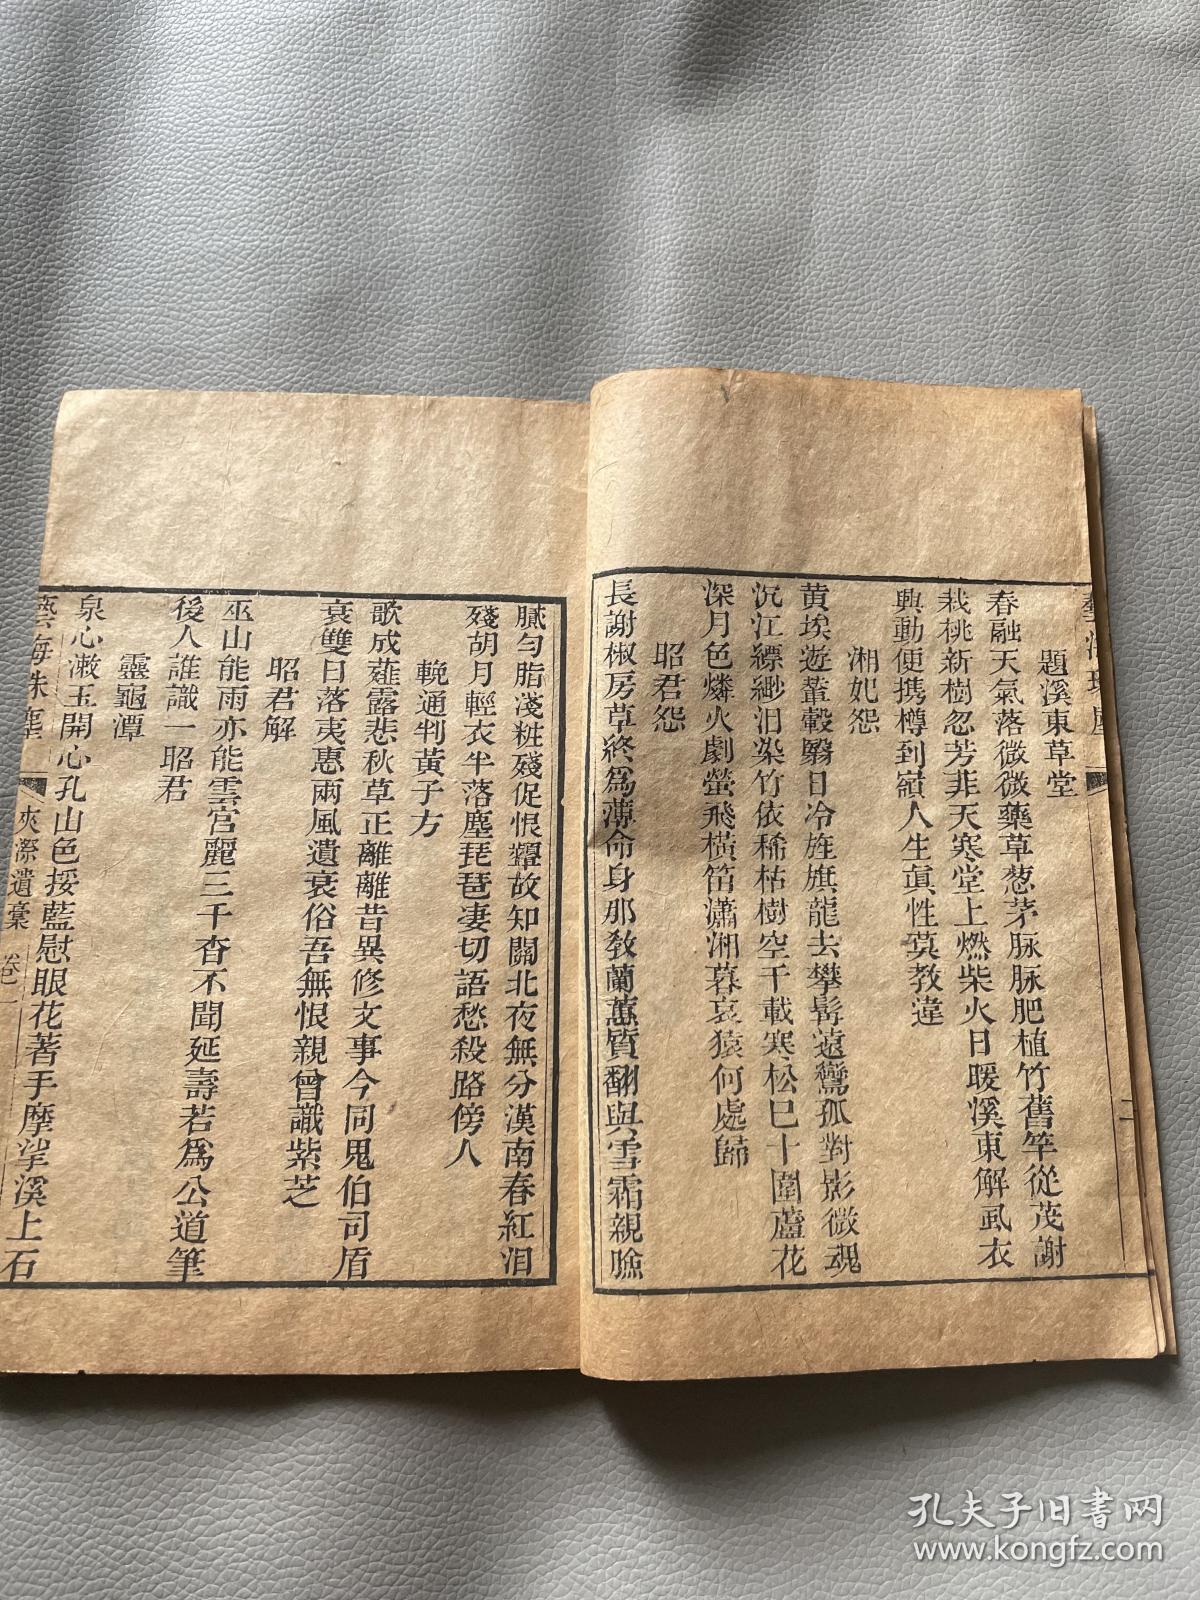 題溪東草堂
春融天氣落微微藥草葱茅脉脉肥植竹舊竿從茂謝
栽桃新樹忍芳非天寒堂上燃柴火日暖溪東解虱衣
興動便携樽到嶺人生眞性莫教違
湘妃怨
黄埃遊葦轂翳日冷旌旗龍去攀髯遠鸞孤對影微魂
沉江縹緲汨染竹依稀枯樹空千載寒松巳十圍蘆花
深月色燐火劇螢飛橫笛瀟湘暮哀猿何處歸
昭君怨
長謝椒房草終爲薄命身那敎蘭蕙質翻與雪霜親臉
膩勻脂淺粧殘促恨顰故知關北夜無分漢南春紅泪
殘胡月輕衣半落塵琵琶凄切語愁殺路傍人
輓通判黃子方
歌成薤露悲秋草正離離昔異修文事今同鬼伯司盾
衰雙日落夷惠兩風遺哀俗吾無恨親曾識紫芝
昭君解
巫山能雨亦能雲宮麗三千杳不聞延壽若爲公道筆
後人誰識一昭君
靈龜潭
泉心漱玉開心孔山色挼藍慰眼花著手摩挲溪上石
藝海珠塵
夾漈遺稾 卷一
二
孔夫子旧书网
www.kongfz.com